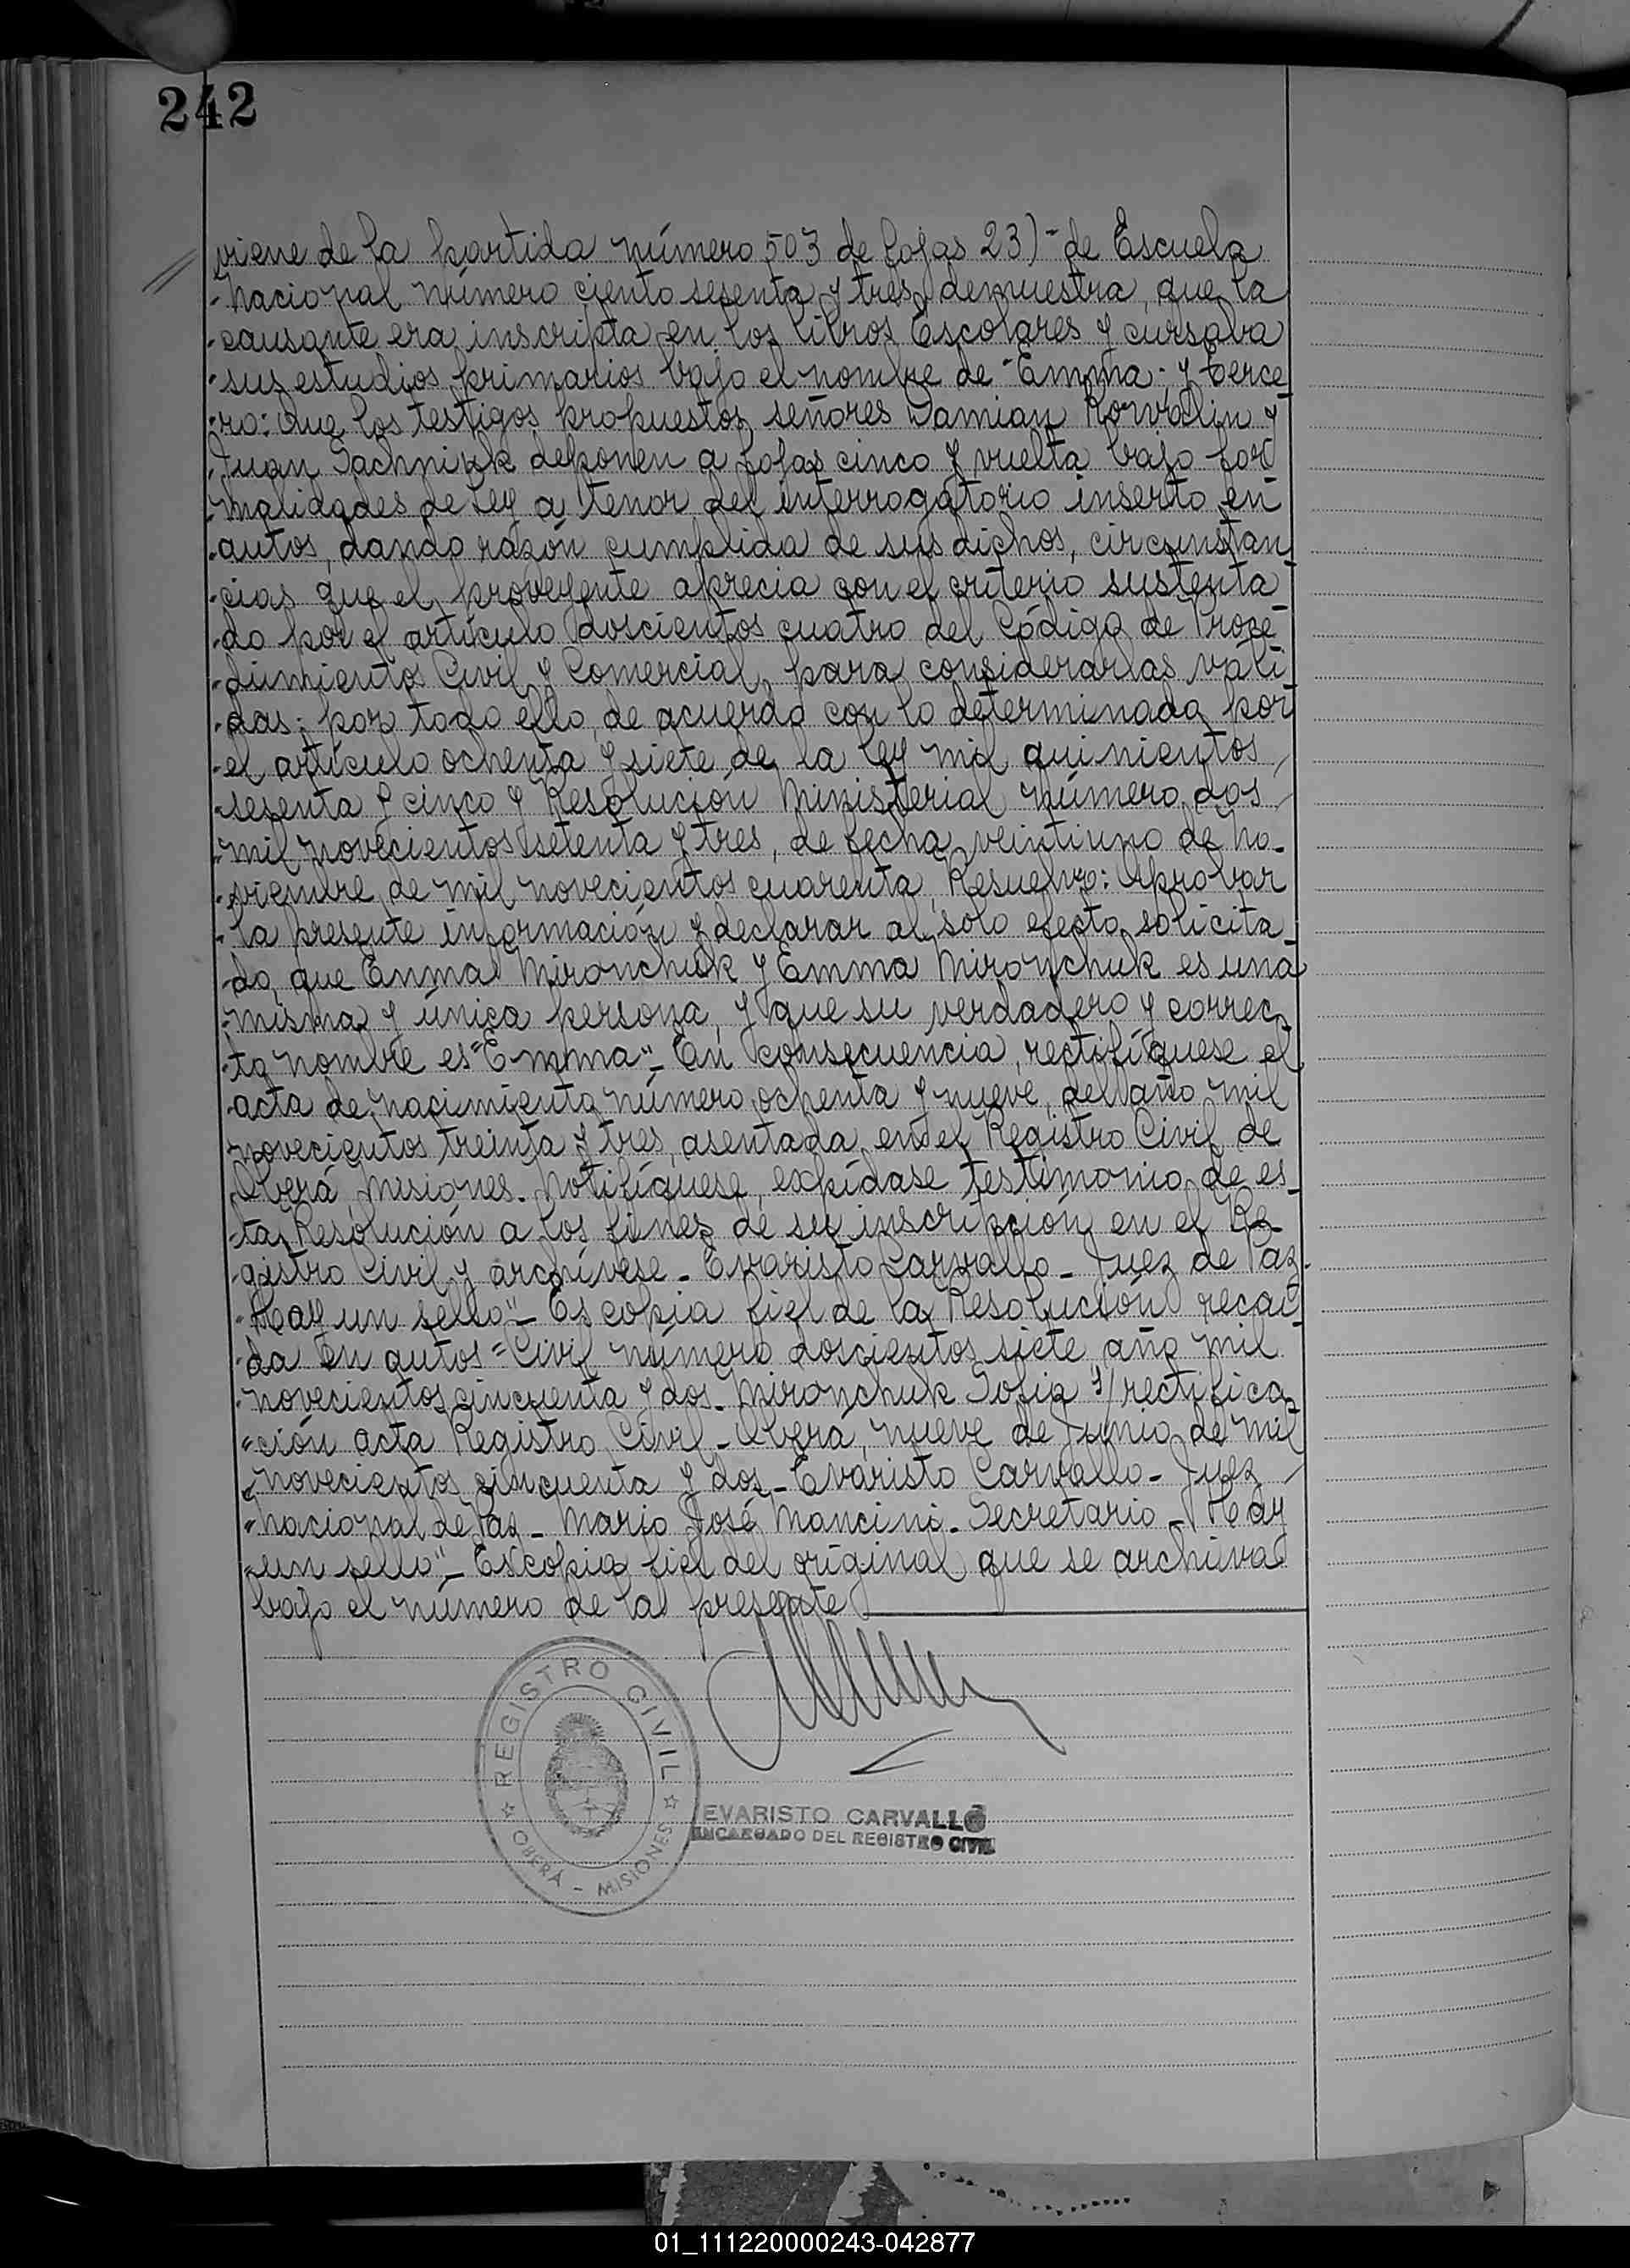 242
viene de la partida número 503 de fojas 23)-de Escuela
"Nacional número ciento sesenta y tres, demuestra, que la
"causante era inscripta en los libros Escolares y cursaba
"sus estudios primarios bajo el nombre de "Emma"; y terce
"ro: Que los testigos propuestos, señores Damian y
"Juan deponen a fojas cinco y vuelta bajo for
"malidades de Ley a tenor del interrogatorio inserto en
"autos, dando razón cumplida de sus dichos, circunstan
"cias que el proveyente aprecia con el criterio sustenta
"do por el artículo doscientos cuatro del Código de Proce-
"dimientos Civil y Comercial, para considerarlas váli
"das; por todo ello, de acuerdo con lo determinado por
"el artículo ochenta y siete de la ley mil quinientos
"sesenta y cinco y Resolución Ministerial número dos
"mil novecientos setenta y tres, de fecha veintiuno de No-
"viembre de mil novecientos cuarenta, Resuelvo: Aprobar
"la presente información y declarar al solo efecto solicita-
"do, que Enma Mironchuk y Emma Mironchuk es una
"misma y única persona, y que su verdadero y correc
"to nombre es "Emma".- En consecuencia, rectifíquese el
"acta de nacimiento número ochenta y nueve, del año mil
"novecientos treinta y tres, asentada en el Registro Civil de
"Oberá, Misiones. Notifíquese, expídase testimonio de es-
"ta Resolución a los fines de su inscripción en el Re-
"gistro Civil y archívese - Evaristo Carvallo - Juez de Paz.
"Hay un sello".- Es copia fiel de la Resolución recaí
"da en autos "Civil número doscientos siete año mil
"novecientos cincuenta y dos - Mironchuk Sofia s/ rectifica
"ción acta Registro Civil - Oberá, nueve de Junio de mil
"novecientos cincuenta y dos - Evaristo Carvallo - Juez
"Nacional de Paz - Mario José Mancini - Secretario - Hay
"un sello".- Es copia fiel del original que se archiva
bajo el número de la presente
REGISTRO CIVIL
OBERÁ - MISIONES
EVARISTO CARVALLO
ENCARGADO DEL REGISTRO CIVIL
01_111220000243-042877